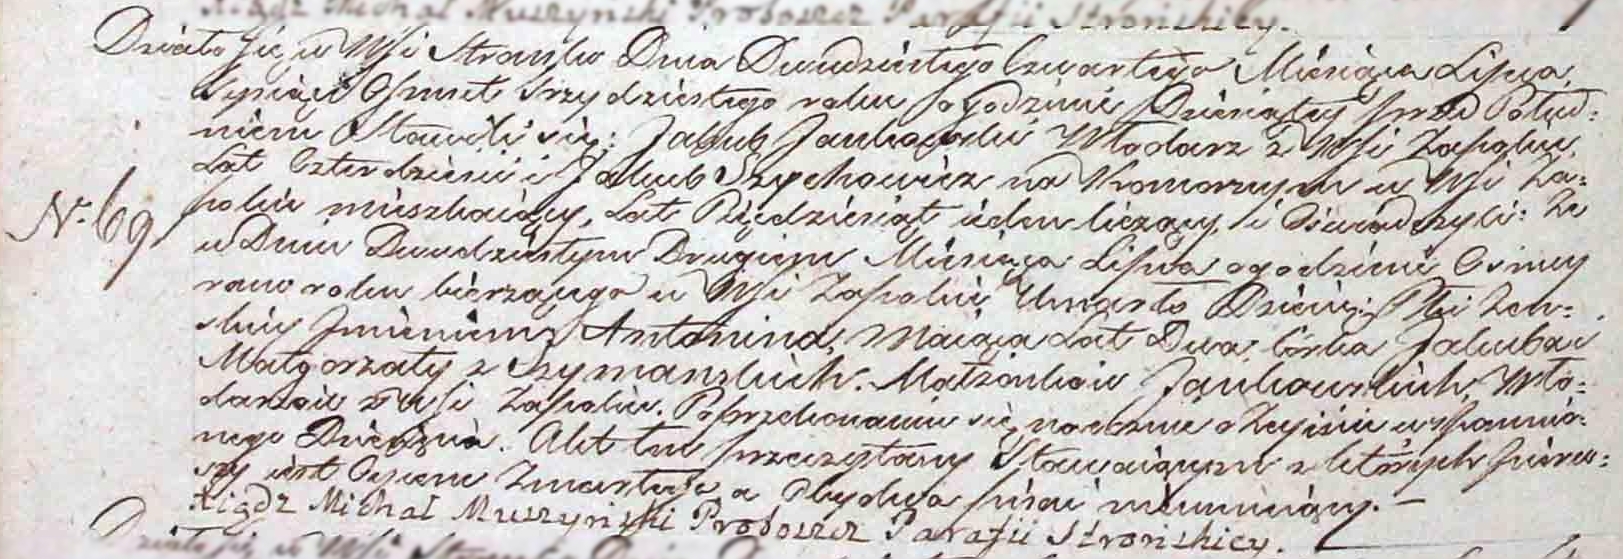 Xiądz Michał Muszyński Proboszcz Parafii Strońskiey.
Działo się w Wsi Strońsko Dnia Dwudziestego Czwartego Miesiąca Lipca
Tysiąc Osmset Trzydziestego roku o godzinie Dziesiątey przed Połud:
niem Stawili się: Jakub Jankowski Włodarz z Wsi Zapolic
Lat Czterdzieści i Jakub Szychowicz na Komornym w Wsi Za:
polic mieszkaiący, Lat Pięćdziesiąt ieden liczący, i Oświadczyli: że
w Dniu Dwudziestym Drugiem Miesiąca Lipca o godzinie Osmey
rano roku bieżącego w Wsi Zapolic Umarło Dziecię Płci Żeń:
skiey Imieniem Antonina, Maiąca Lat Dwa, Córka Jakuba i
Małgorzaty z Szymanskich. Małżonków Jankowskich, Wło:
darzów z Wsi Zapolic. Po przekonaniu się naocznie o Zeyściu wspomnio:
nego Dziecięcia. Akt ten przeczytany Stawaiącym z których pierw:
szy iest Oycem Zmarłego a Obydwa pisać nieumieiący. –
Xiądz Michał Muszyński Proboszcz Parafii Strońskiey.
Działo się w Wsi
N. 69